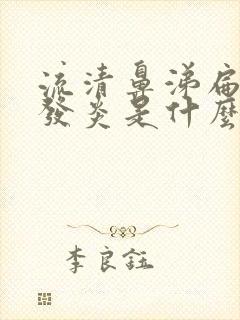 流清鼻涕扁
發炎是什麼
李良鈺